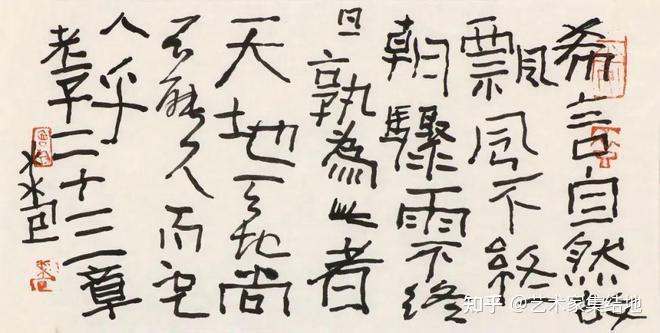 希言自然故
飄風不終
朝驟雨不終
日孰為此者
天地天地尚
不能久而况
人乎
老子二十三章
知乎 @艺术家集结地